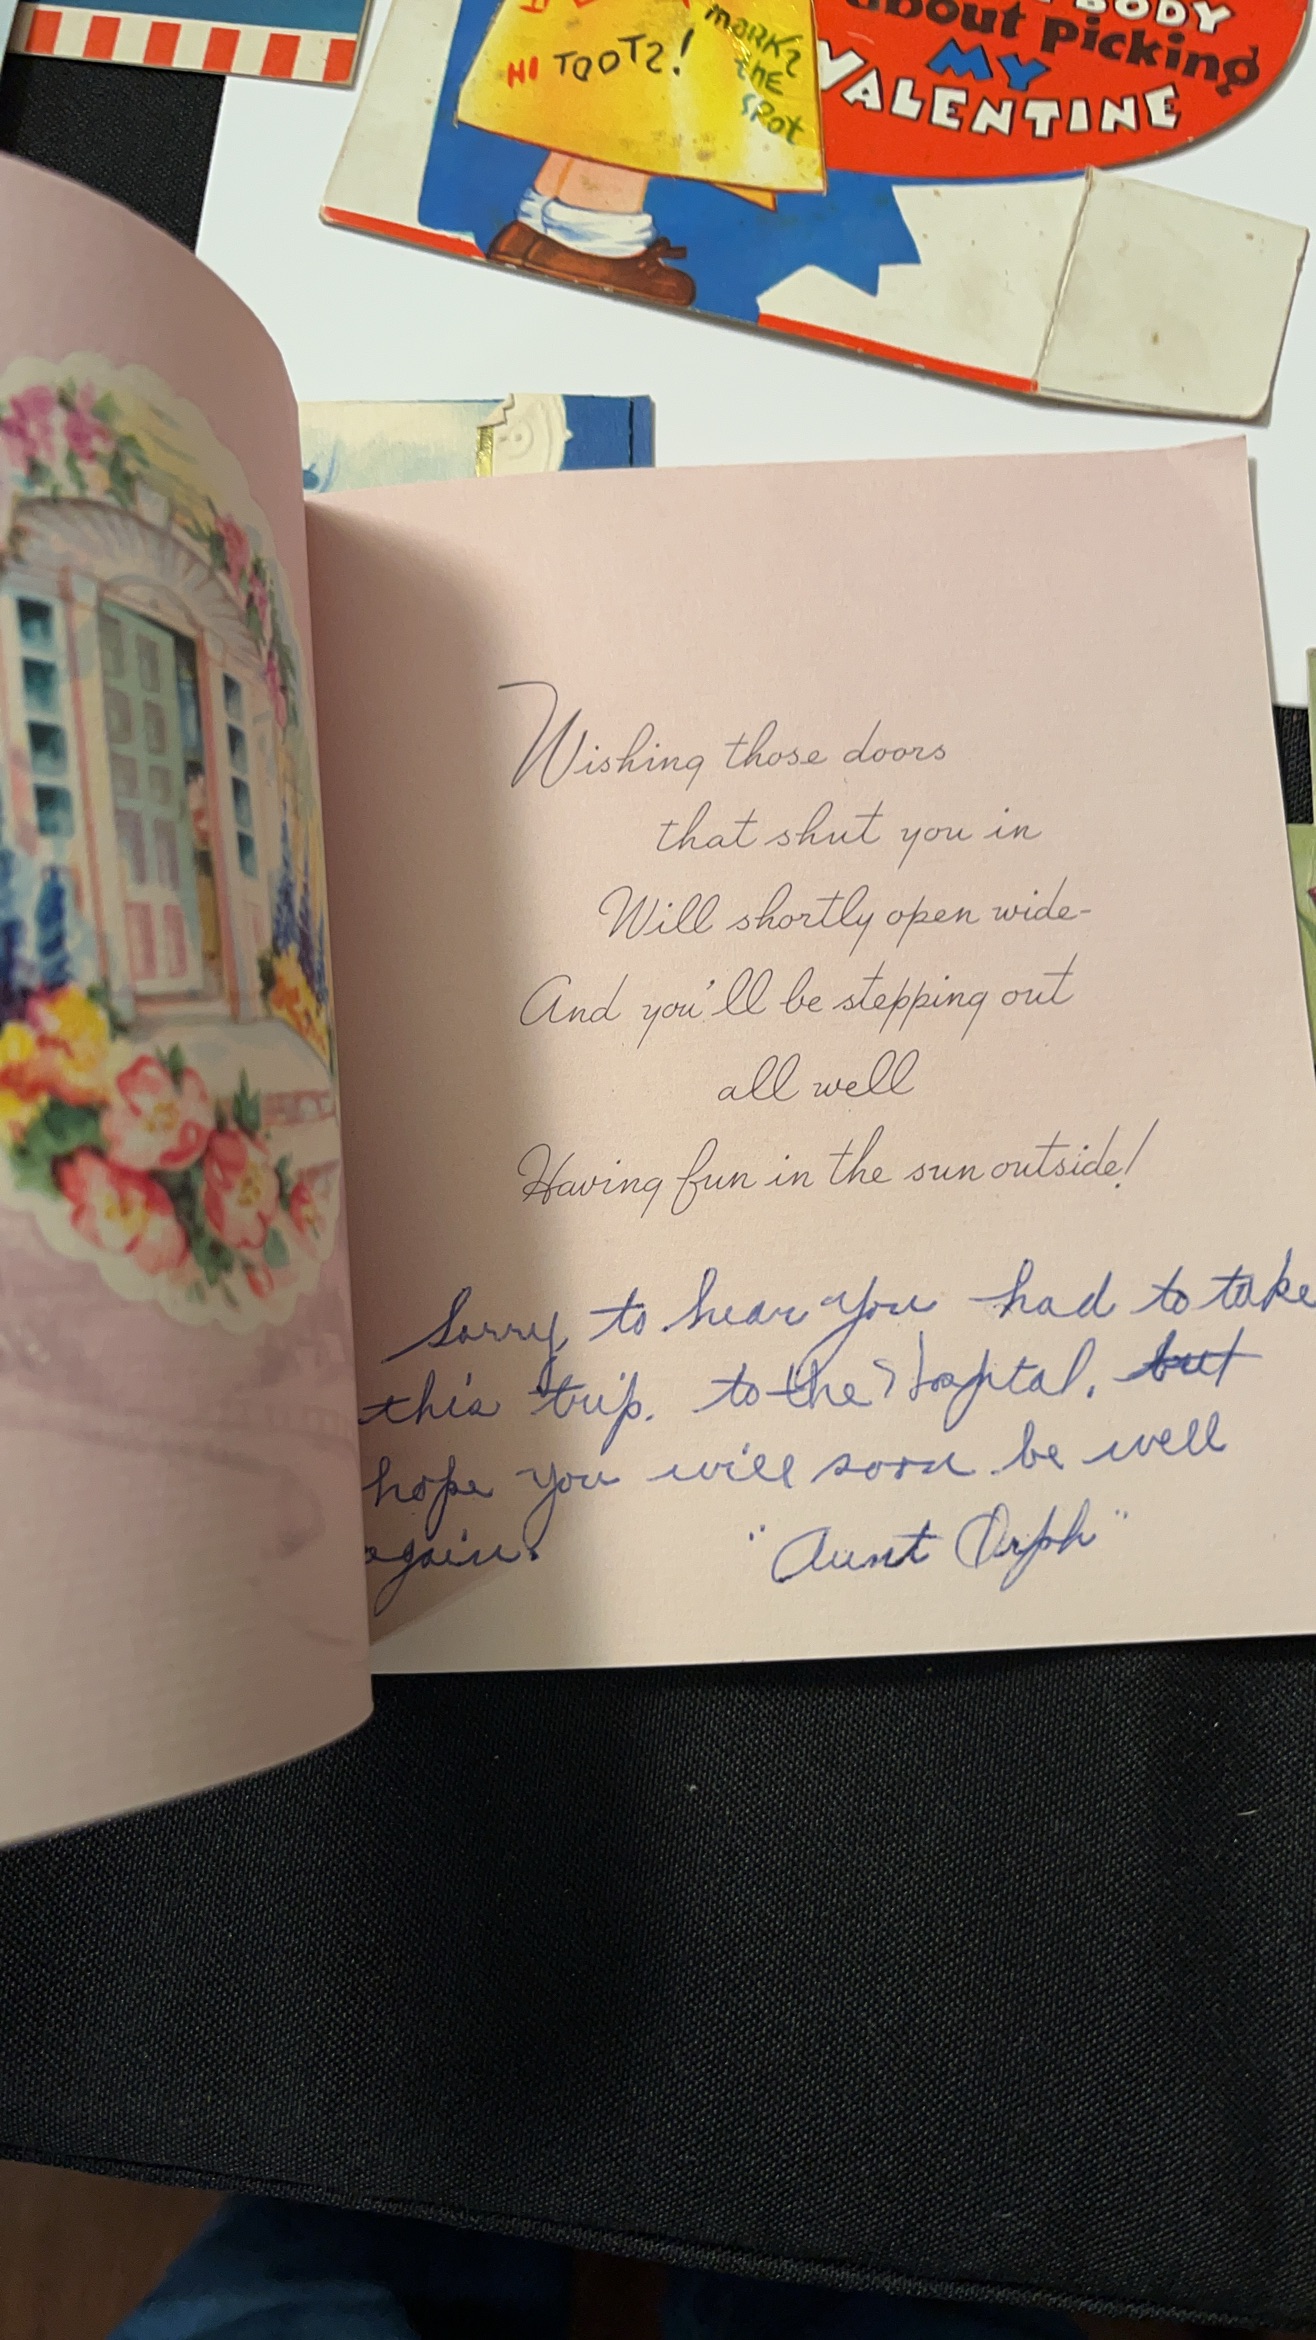 HI TOOTS!
MARKS
THE
SPOT
BODY
about picking
MY
VALENTINE
Wishing those doors
that shut you in
Will shortly open wide-
And you'll be stepping out
all well
Having fun in the sun outside!
Sorry to hear you had to take
this trip. to the Hospital. but
hope you will soon be well
again.
"Aunt Orph"